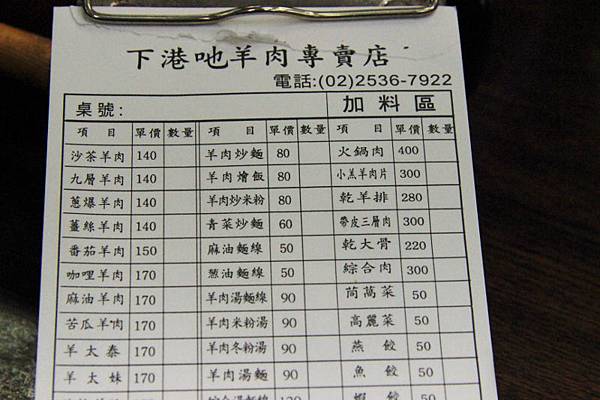 下港吔羊肉專賣店
電話:(02)2536-7922
桌號: 加料區
項目 單價 數量 項目 單價 數量 項目 單價 數量
沙茶羊肉 140 羊肉炒麵 80 火鍋肉 400
九層羊肉 140 羊肉燴飯 80 小羔羊肉片 300
蔥爆羊肉 140 羊肉炒米粉 80 乾羊排 280
薑絲羊肉 140 青菜炒麵 60 帶皮三層肉 300
番茄羊肉 150 麻油麵線 50 乾大骨 220
咖哩羊肉 170 葱油麵線 50 綜合肉 300
麻油羊肉 170 羊肉湯麵線 90 茼萵菜 50
苦瓜羊肉 170 羊肉米粉湯 90 高麗菜 50
羊太泰 170 羊肉冬粉湯 90 燕餃 50
羊太妹 170 羊肉湯麵 90 魚餃 50
綜合湯麵線 120 蝦餃 50